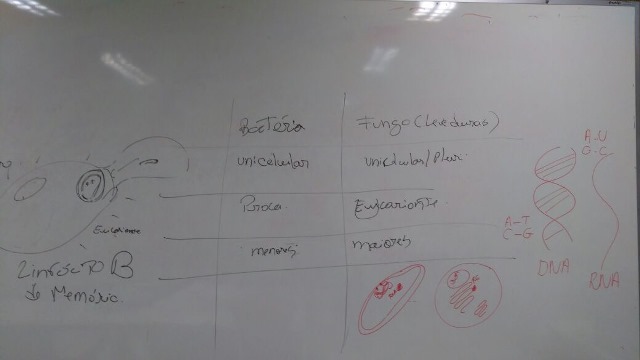 Bactéria
Fungo (Leveduras)
unicelular
Proca.
Eucarionte
menores
maiores
Linfócito B
de Memória.
A-U
G-C
A-T
C-G
DNA
RNA